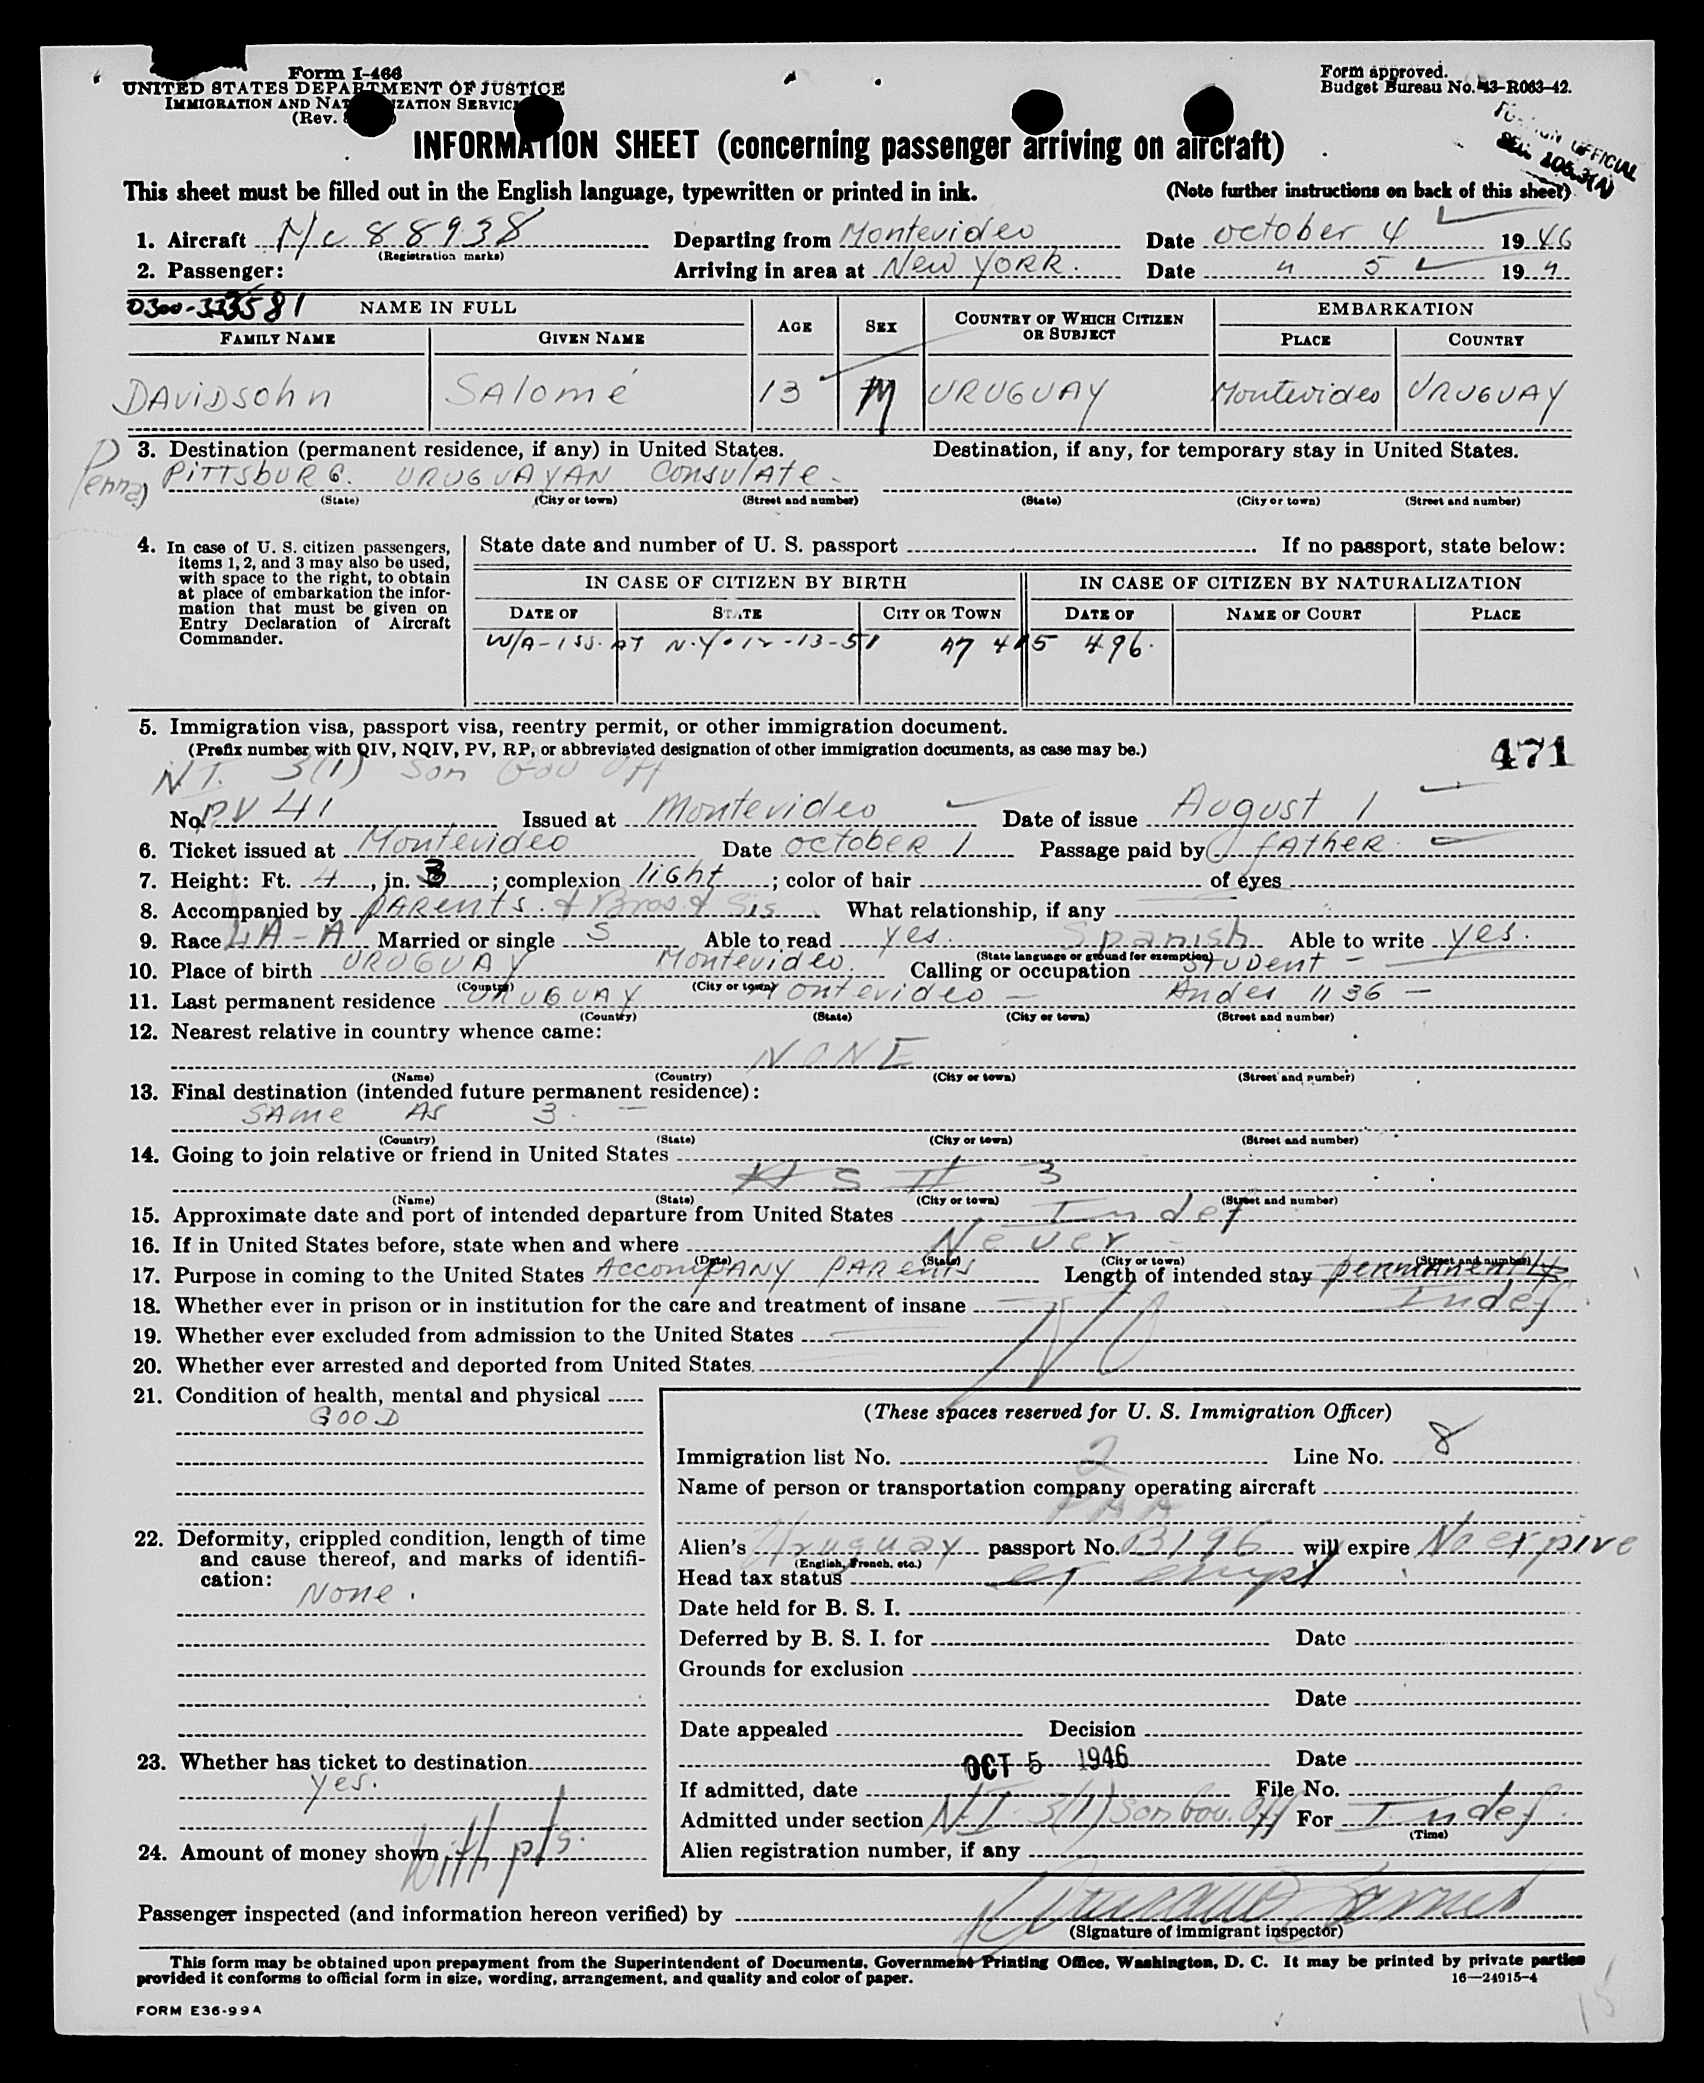 Form I-466
UNITED STATES DEPARTMENT OF JUSTICE
IMMIGRATION AND NATURALIZATION SERVICE
(Rev.
Form approved.
Budget Bureau No. 43-R063-42.
OFFICIAL
INFORMATION SHEET (concerning passenger arriving on aircraft)
This sheet must be filled out in the English language, typewritten or printed in ink.
(Note further instructions on back of this sheet)
1. Aircraft N/c 88938 Departing from Montevideo Date october 4 1946
(Registration marks)
2. Passenger: Arriving in area at New YORK. Date " 5 19 "
0300-333581 NAME IN FULL AGE SEX COUNTRY OF WHICH CITIZEN OR SUBJECT EMBARKATION
FAMILY NAME GIVEN NAME PLACE COUNTRY
DAVIDSohn SAlomé 13 M URUGUAY Montevideo URUGUAY
3. Destination (permanent residence, if any) in United States. Destination, if any, for temporary stay in United States.
Penna) PITTSbURG. URUGUAYAN ConsulAte -
(State) (City or town) (Street and number) (State) (City or town) (Street and number)
4. In case of U. S. citizen passengers, items 1, 2, and 3 may also be used, with space to the right, to obtain at place of embarkation the information that must be given on Entry Declaration of Aircraft Commander.
State date and number of U. S. passport If no passport, state below:
IN CASE OF CITIZEN BY BIRTH IN CASE OF CITIZEN BY NATURALIZATION
DATE OF STATE CITY OR TOWN DATE OF NAME OF COURT PLACE
W/A-ISS. AT N.Y. 12-13-51 A7 415 496.
5. Immigration visa, passport visa, reentry permit, or other immigration document.
(Prefix number with QIV, NQIV, PV, RP, or abbreviated designation of other immigration documents, as case may be.)
471
N I. 3(1) Son Gov Off
No. PV 41 Issued at Montevideo Date of issue August 1
6. Ticket issued at Montevideo Date octobeR 1 Passage paid by fAtheR
7. Height: Ft. 4, in. 3; complexion liGht; color of hair of eyes
8. Accompanied by pARents. & Bros & Sis What relationship, if any
9. Race LA-A Married or single S Able to read yes. Spanish Able to write yes.
(State language or ground for exemption)
10. Place of birth URUGUAY Montevideo. Calling or occupation STUDent -
(Country) (City or town)
11. Last permanent residence URUGUAY Montevideo - Andes 1136 -
(Country) (State) (City or town) (Street and number)
12. Nearest relative in country whence came:
NONE
(Name) (Country) (City or town) (Street and number)
13. Final destination (intended future permanent residence):
SAme AS 3. -
(Country) (State) (City or town) (Street and number)
14. Going to join relative or friend in United States
AS # 3
(Name) (State) (City or town) (Street and number)
15. Approximate date and port of intended departure from United States Indef
16. If in United States before, state when and where Never
(Date) (State) (City or town) (Street and number)
17. Purpose in coming to the United States AccompANY PARents Length of intended stay permanently
Indef
18. Whether ever in prison or in institution for the care and treatment of insane
19. Whether ever excluded from admission to the United States No
20. Whether ever arrested and deported from United States.
21. Condition of health, mental and physical
GOOD
(These spaces reserved for U. S. Immigration Officer)
Immigration list No. 2 Line No. 8
Name of person or transportation company operating aircraft
PAA
22. Deformity, crippled condition, length of time and cause thereof, and marks of identification:
None.
Alien's Uruguay passport No. 03196 will expire No expire
(English, French, etc.)
Head tax status exempt
Date held for B. S. I.
Deferred by B. S. I. for Date
Grounds for exclusion
Date
Date appealed Decision
23. Whether has ticket to destination
yes.
OCT 5 1946 Date
If admitted, date File No.
Admitted under section N I 3(1) Son Gov. Off For Indef.
(Time)
24. Amount of money shown With pts.
Alien registration number, if any
Passenger inspected (and information hereon verified) by
(Signature of immigrant inspector)
This form may be obtained upon prepayment from the Superintendent of Documents, Government Printing Office, Washington, D. C. It may be printed by private parties
provided it conforms to official form in size, wording, arrangement, and quality and color of paper.
16—24915-4
FORM E36-99A
15